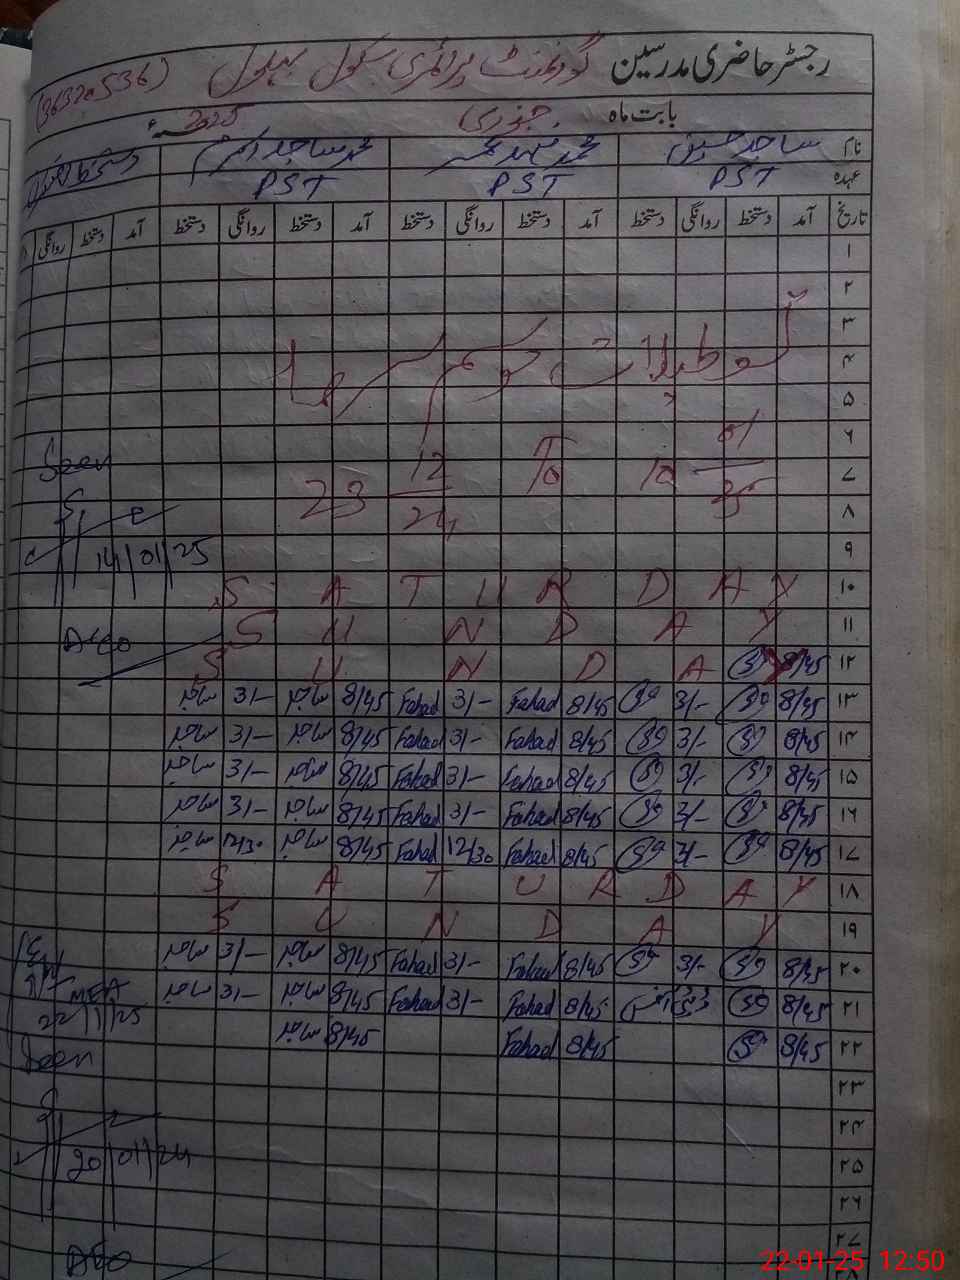 رجسٹر حاضری مدرسین گورنمنٹ پرائمری سکول بہلول (36320536)
بابت ماہ جنوری 2025ء
نام ساجد حسین محمد فہد محمد ساجد اکرم
عہدہ PST PST PST
تاریخ آمد دستخط روانگی دستخط آمد دستخط روانگی دستخط آمد دستخط روانگی دستخط آمد دستخط روانگی
۱
۲
۳
۴ تعطیلات موسم سرما
۵
۶
۷ 23 12/24 To 10 01/25
Seen
۸
۹
14/01/25
۱۰ SATURDAY
۱۱ SUNDAY
۱۲ 8/45 SUNDAY
۱۳ 8/45 3/- 8/45 Fahad 3/- Fahad 8/45 ساجد 3/- ساجد
۱۴ 8/45 3/- 8/45 Fahad 3/- Fahad 8/45 ساجد 3/- ساجد
۱۵ 8/45 3/- 8/45 Fahad 3/- Fahad 8/45 ساجد 3/- ساجد
۱۶ 8/45 3/- 8/45 Fahad 3/- Fahad 8/45 ساجد 3/- ساجد
۱۷ 8/45 3/- 8/45 Fahad 12/30 Fahad 8/45 ساجد 12/30 ساجد
۱۸ SATURDAY
۱۹ SUNDAY
۲۰ 8/45 3/- 8/45 Fahad 3/- Fahad 8/45 ساجد 3/- ساجد
۲۱ 8/45 8/45 Fahad 3/- Fahad 8/45 ساجد 3/- ساجد
MEA
22/1/25
۲۲ 8/45 8/45 Fahad 8/45 ساجد
Seen
۲۳
۲۴
۲۵
20/01/24
۲۶
۲۷
22-01-25 12:50